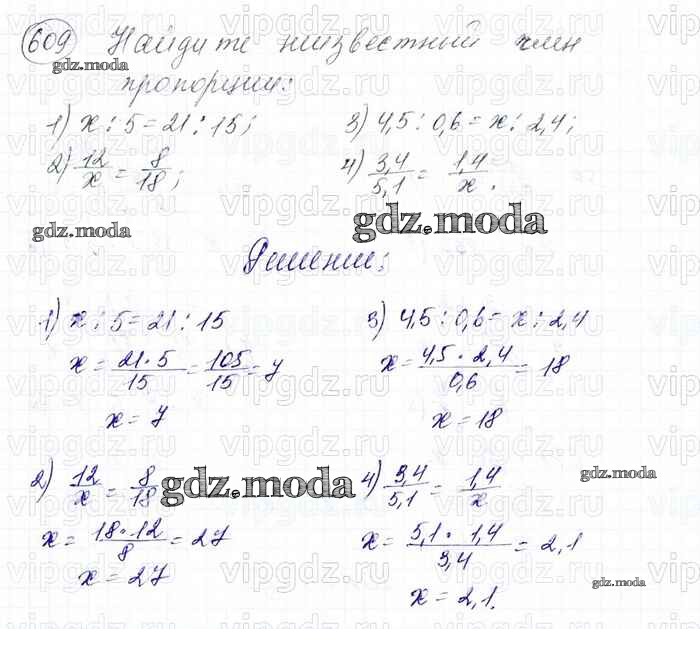 609 Найдите неизвестный член
пропорции:
1) x : 5 = 21 : 15;
2) 12/x = 8/18;
3) 4,5 : 0,6 = x : 2,4;
4) 3,4/5,1 = 1,4/x.
Решение:
1) x : 5 = 21 : 15
x = 21·5/15 = 105/15 = 7
x = 7
2) 12/x = 8/18
x = 18·12/8 = 27
x = 27
3) 4,5 : 0,6 = x : 2,4
x = 4,5·2,4/0,6 = 18
x = 18
4) 3,4/5,1 = 1,4/x
x = 5,1·1,4/3,4 = 2,1
x = 2,1.
gdz.moda
gdz.moda
gdz.moda
gdz.moda
gdz.moda
gdz.moda
vipgdz.com